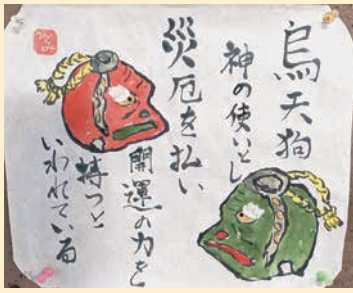 烏天狗
神の使いとし
災厄を払い
開運の力を
持つと
いわれている